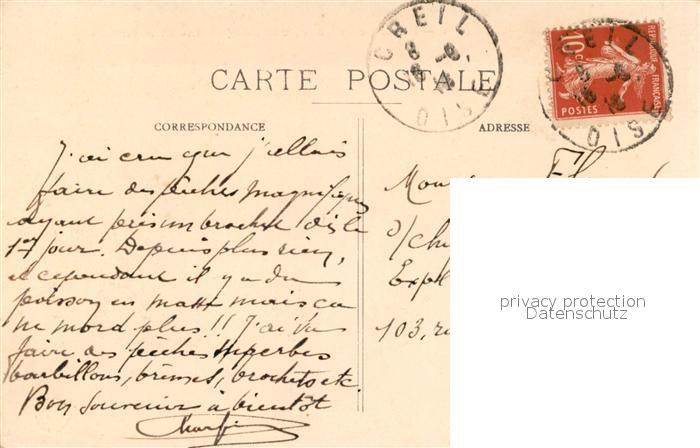 CREIL
OISE
10c
REPUBLIQUE FRANÇAISE
POSTES
CREIL
OISE
CARTE POSTALE
CORRESPONDANCE
J'ai cru que j'allais
faire des pêches magnifiques
ayant pris un brochet dès le
1er jour. Depuis plus rien,
et cependant il y a du
poisson en masse mais ça
ne mord plus!! J'ai vu
faire des pêches superbes
barbillons, brèmes, brochets etc.
Bon souvenir à bientôt
ADRESSE
103, r
privacy protection
Datenschutz